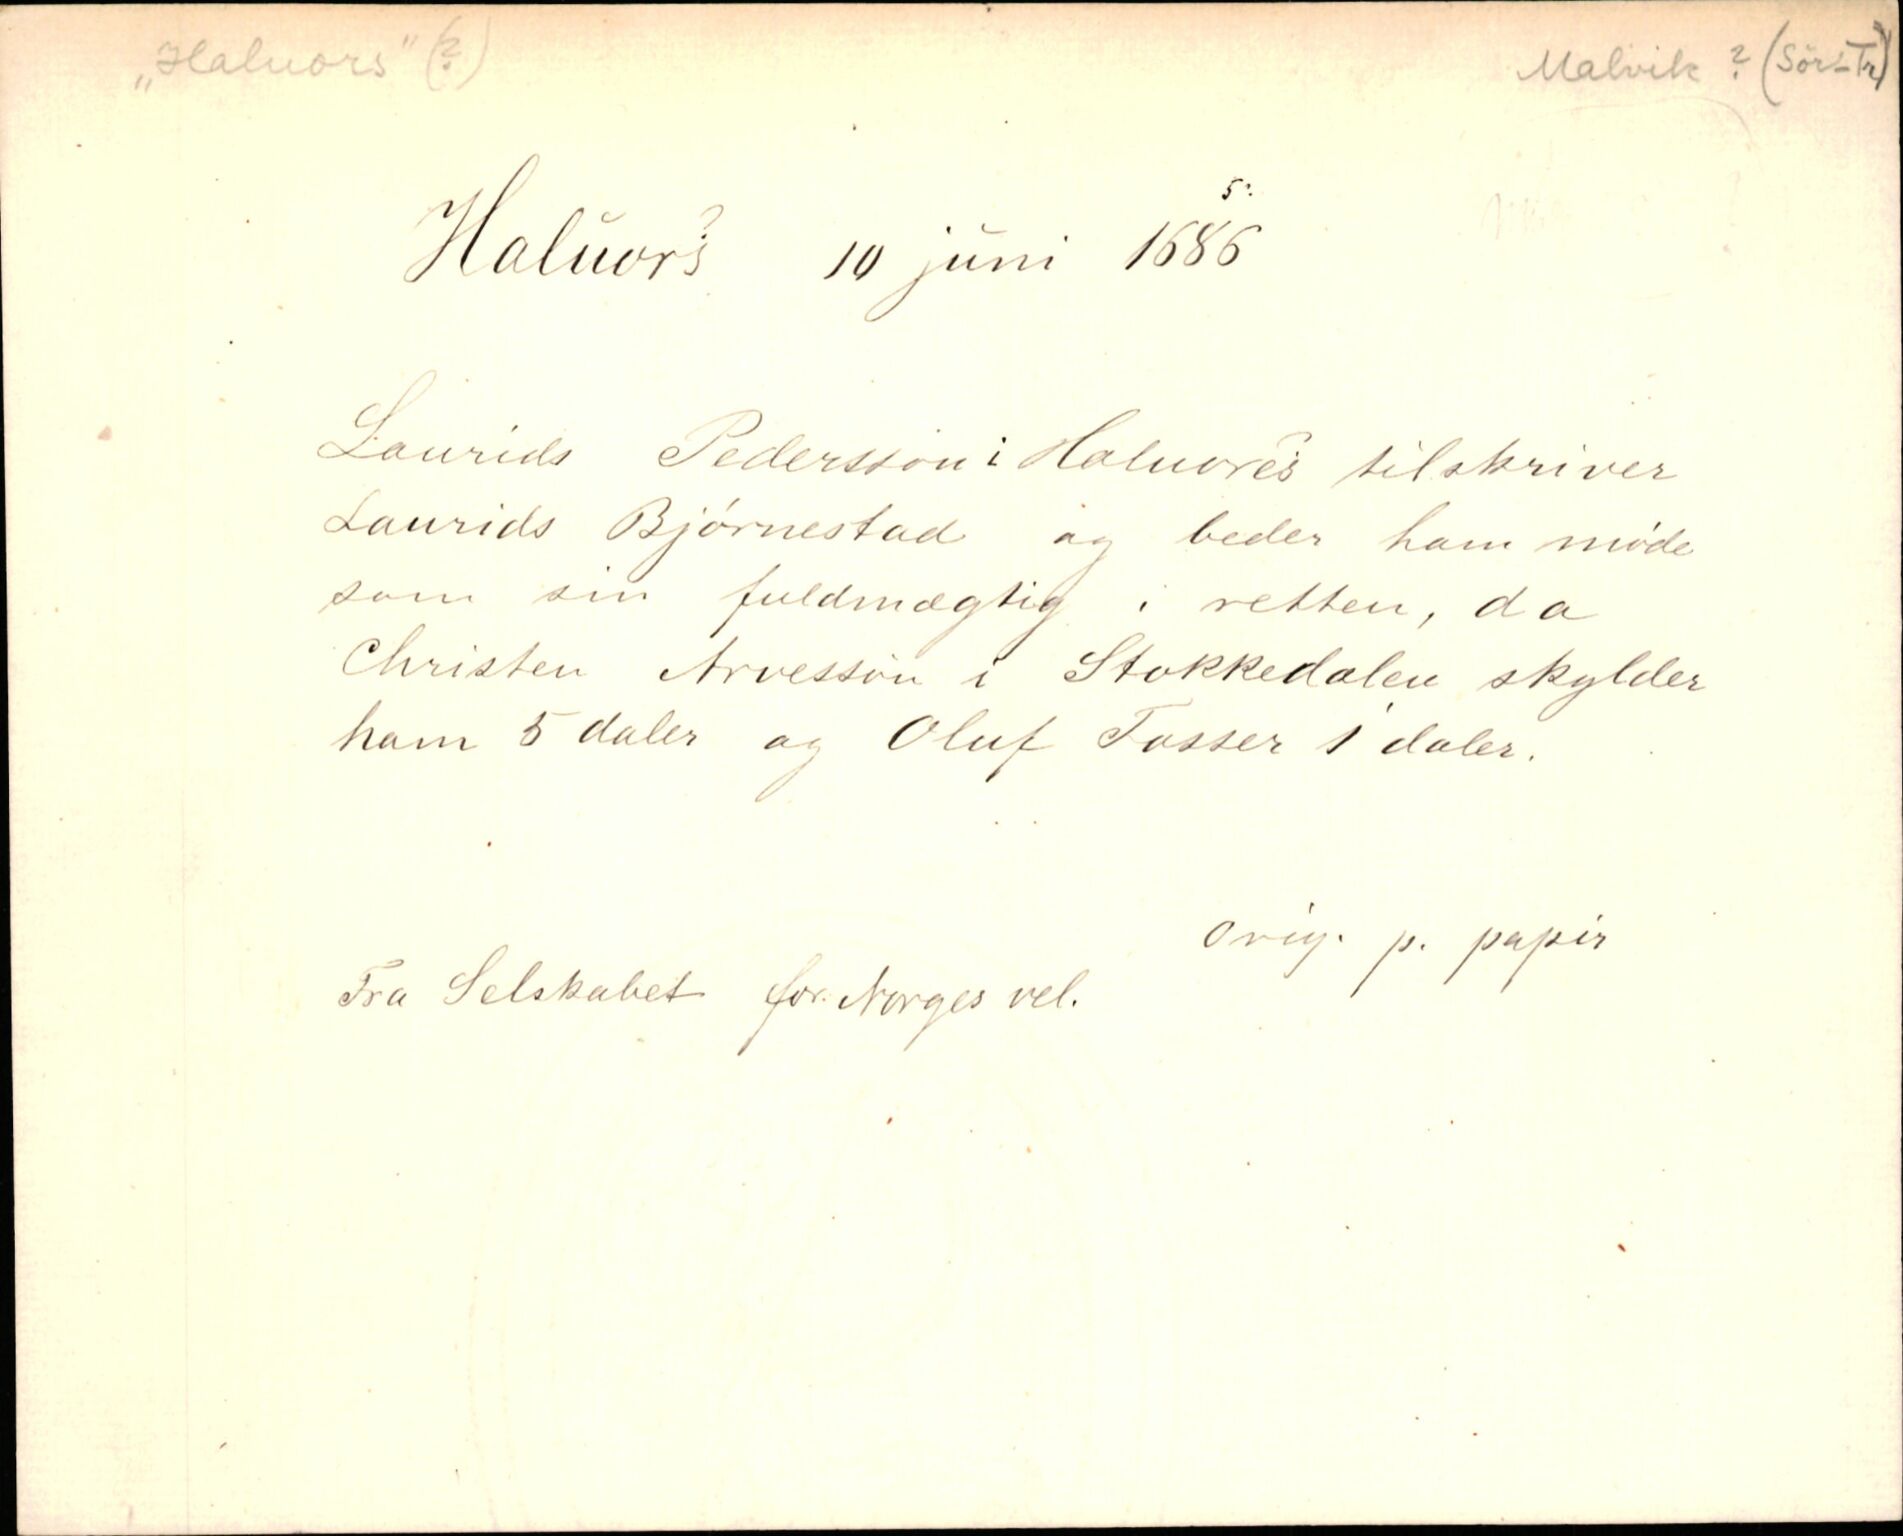 „Haluors" (?) Malvik ? (Sör-Tr)
5?
Haluors? 10 juni 1686
Laurids Pedersson i Haluors? tilskriver
Laurids Bjórnestad og beder ham móde
som sin fuldmægtig i retten, da
Christen Arvesson i Stokkedalen skylder
ham 5 daler og Oluf Fosser 1 daler.
Orig. p. papir
Fra Selskabet for Norges vel.